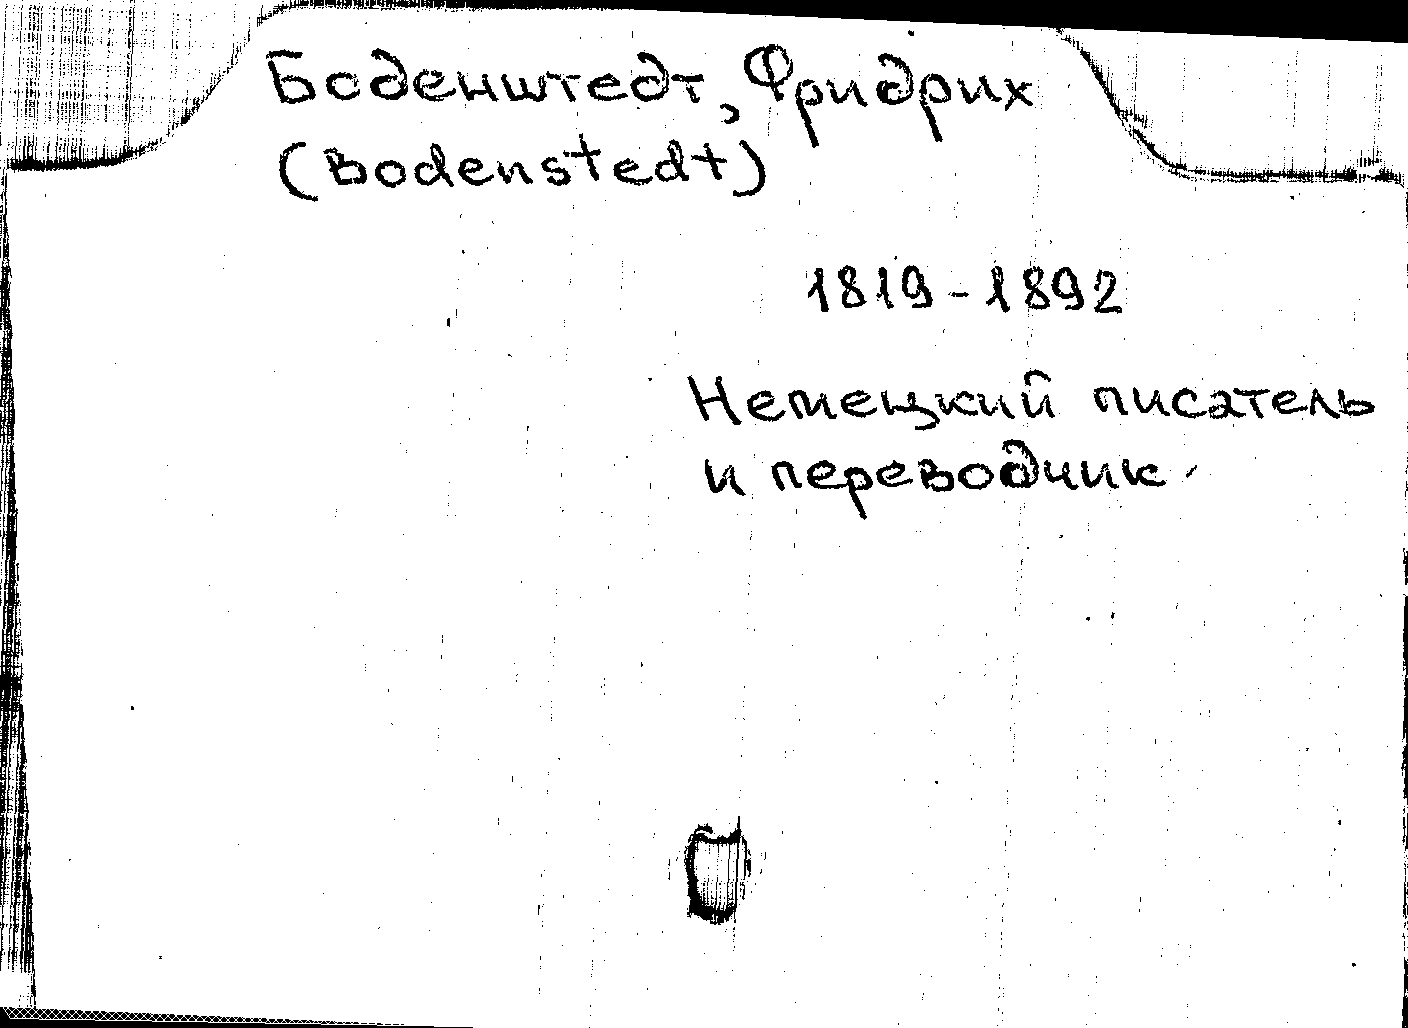 Боденштедт, Фридрих
(Bodenstedt)
1819-1892
Немецкий писатель
и переводчик.